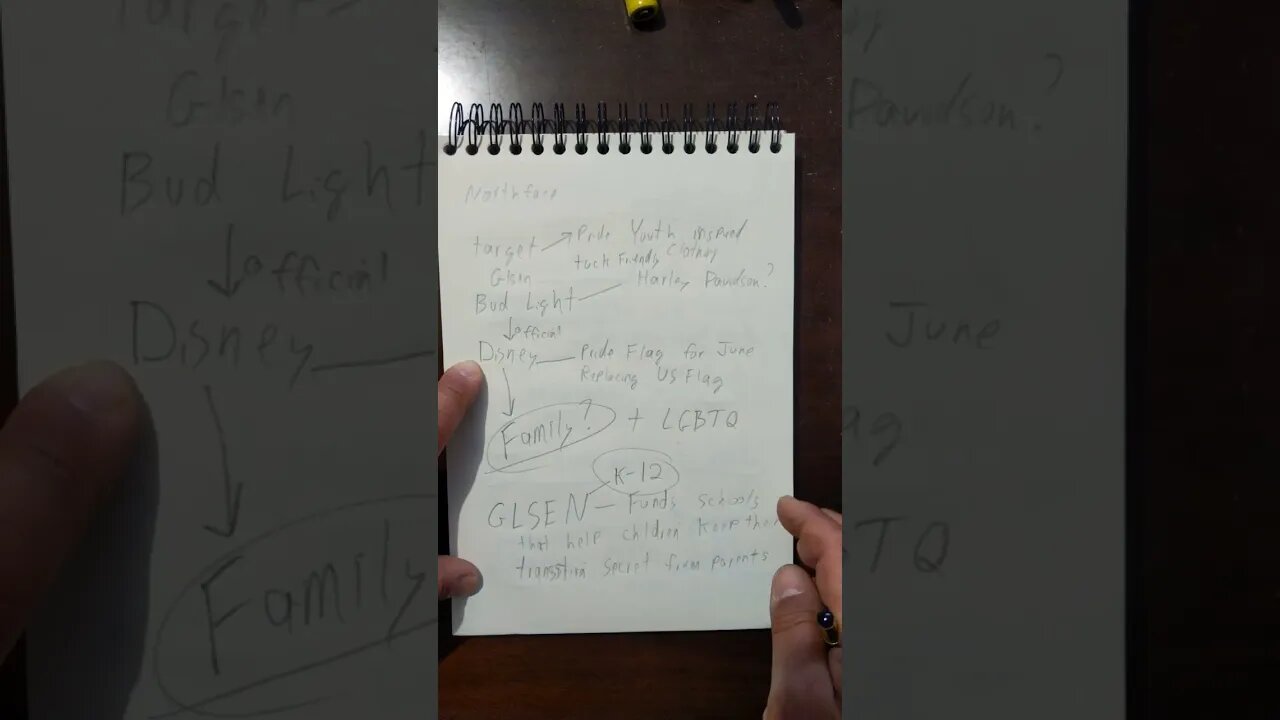 Northface
target → Pride Youth inspired
Clothing
tuck Friendly
Glsen
Harley Davidson?
Bud Light
↓ official
Disney — Pride Flag for June
Replacing US Flag
Family? + LGBTQ
K-12
GLSEN — Funds schools
that help children keep their
transition secret from parents